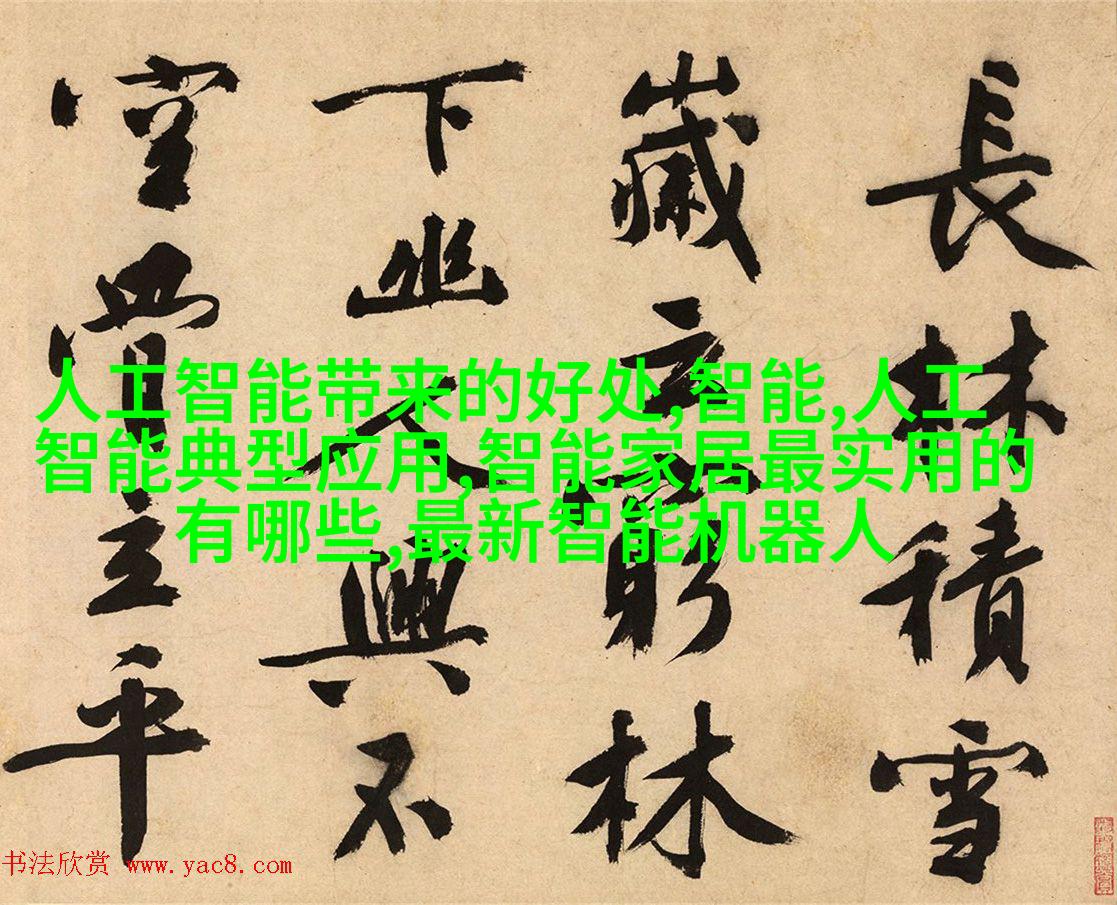 長林積雪
歲云窮林
下幽人興不
空立平
人工智能带来的好处,智能,人工
智能典型应用,智能家居最实用的
有哪些,最新智能机器人
书法欣赏 www.yac8.com